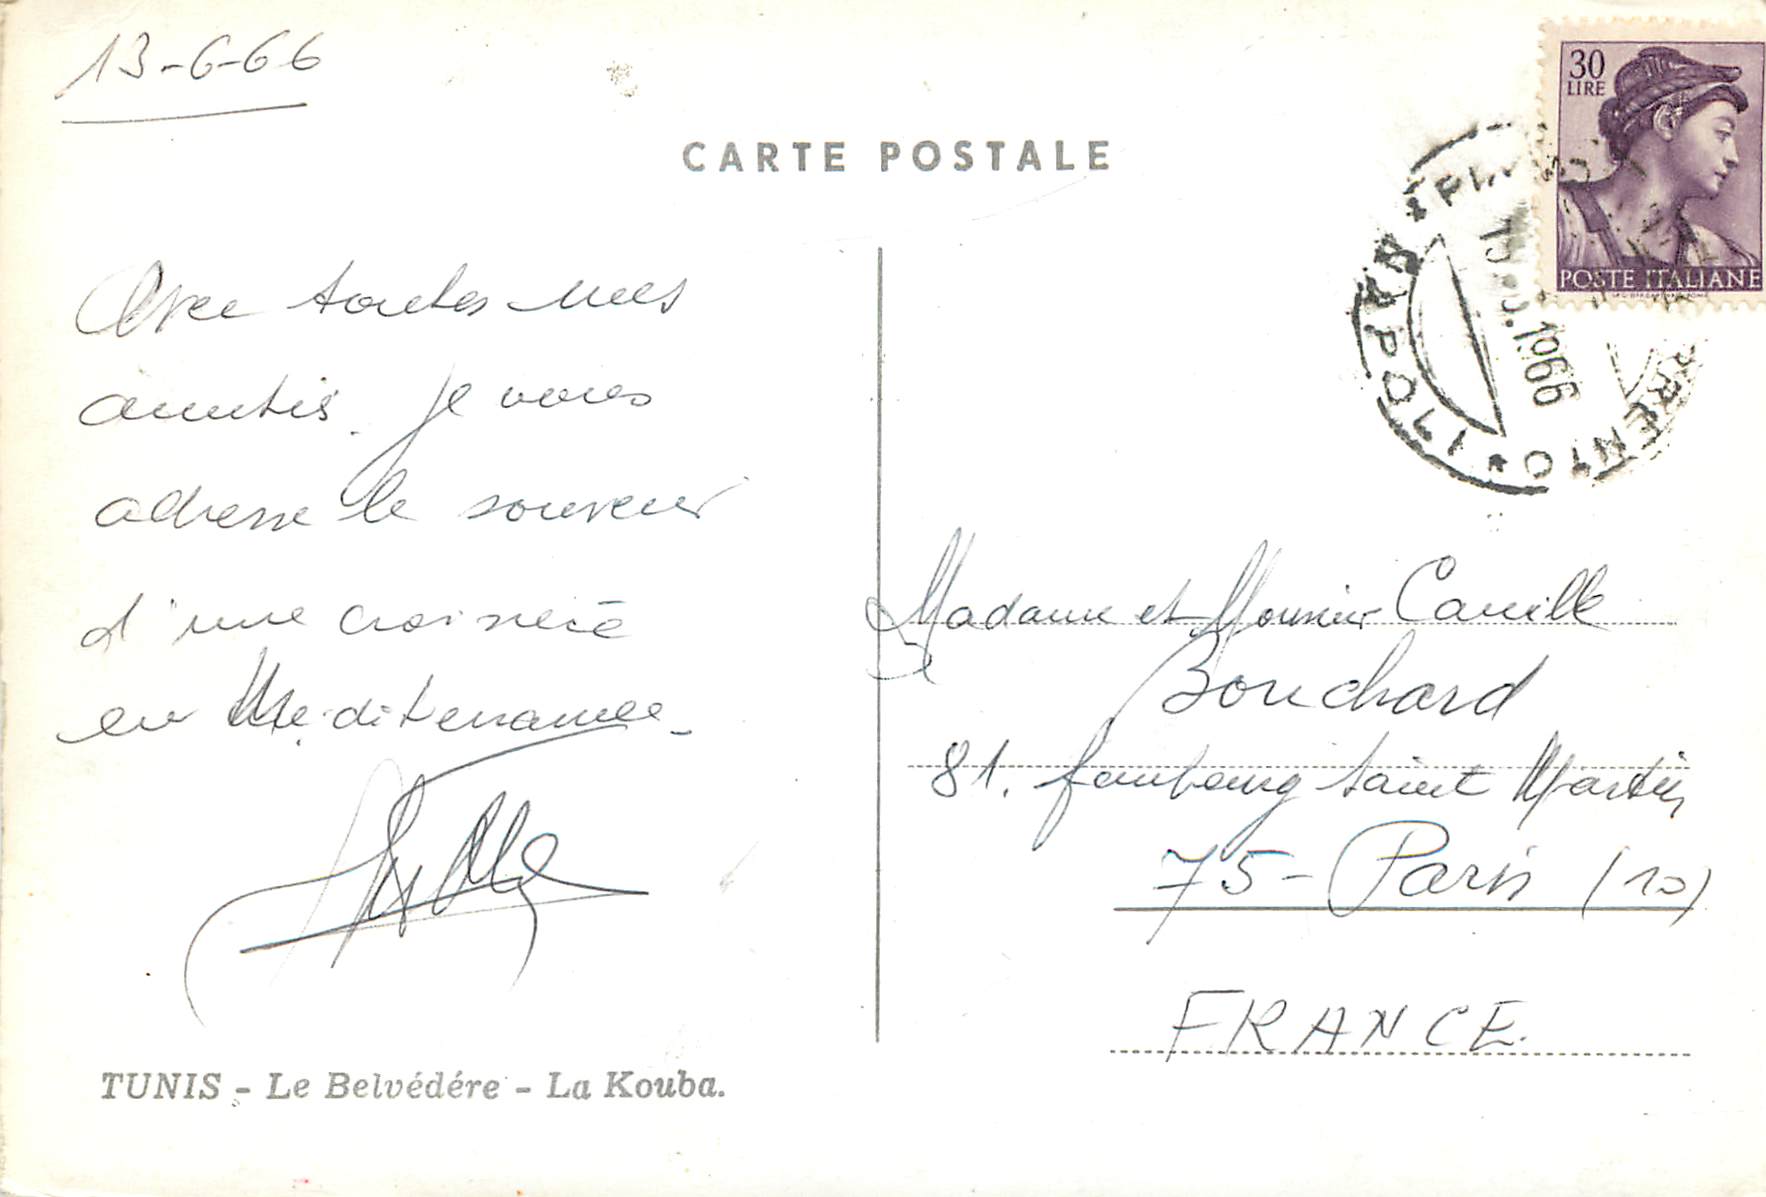 13-6-66
CARTE POSTALE
30
LIRE
POSTE ITALIANE
NAPOLI
1966
Avec toutes mes
amitiés. Je vous
adresse le souvenir
d'une croisière
en Méditerranée_
Madame et Monsieur Camille
Bouchard
81. faubourg Saint Martin
75 - Paris (10)
FRANCE.
TUNIS - Le Belvédére - La Kouba.